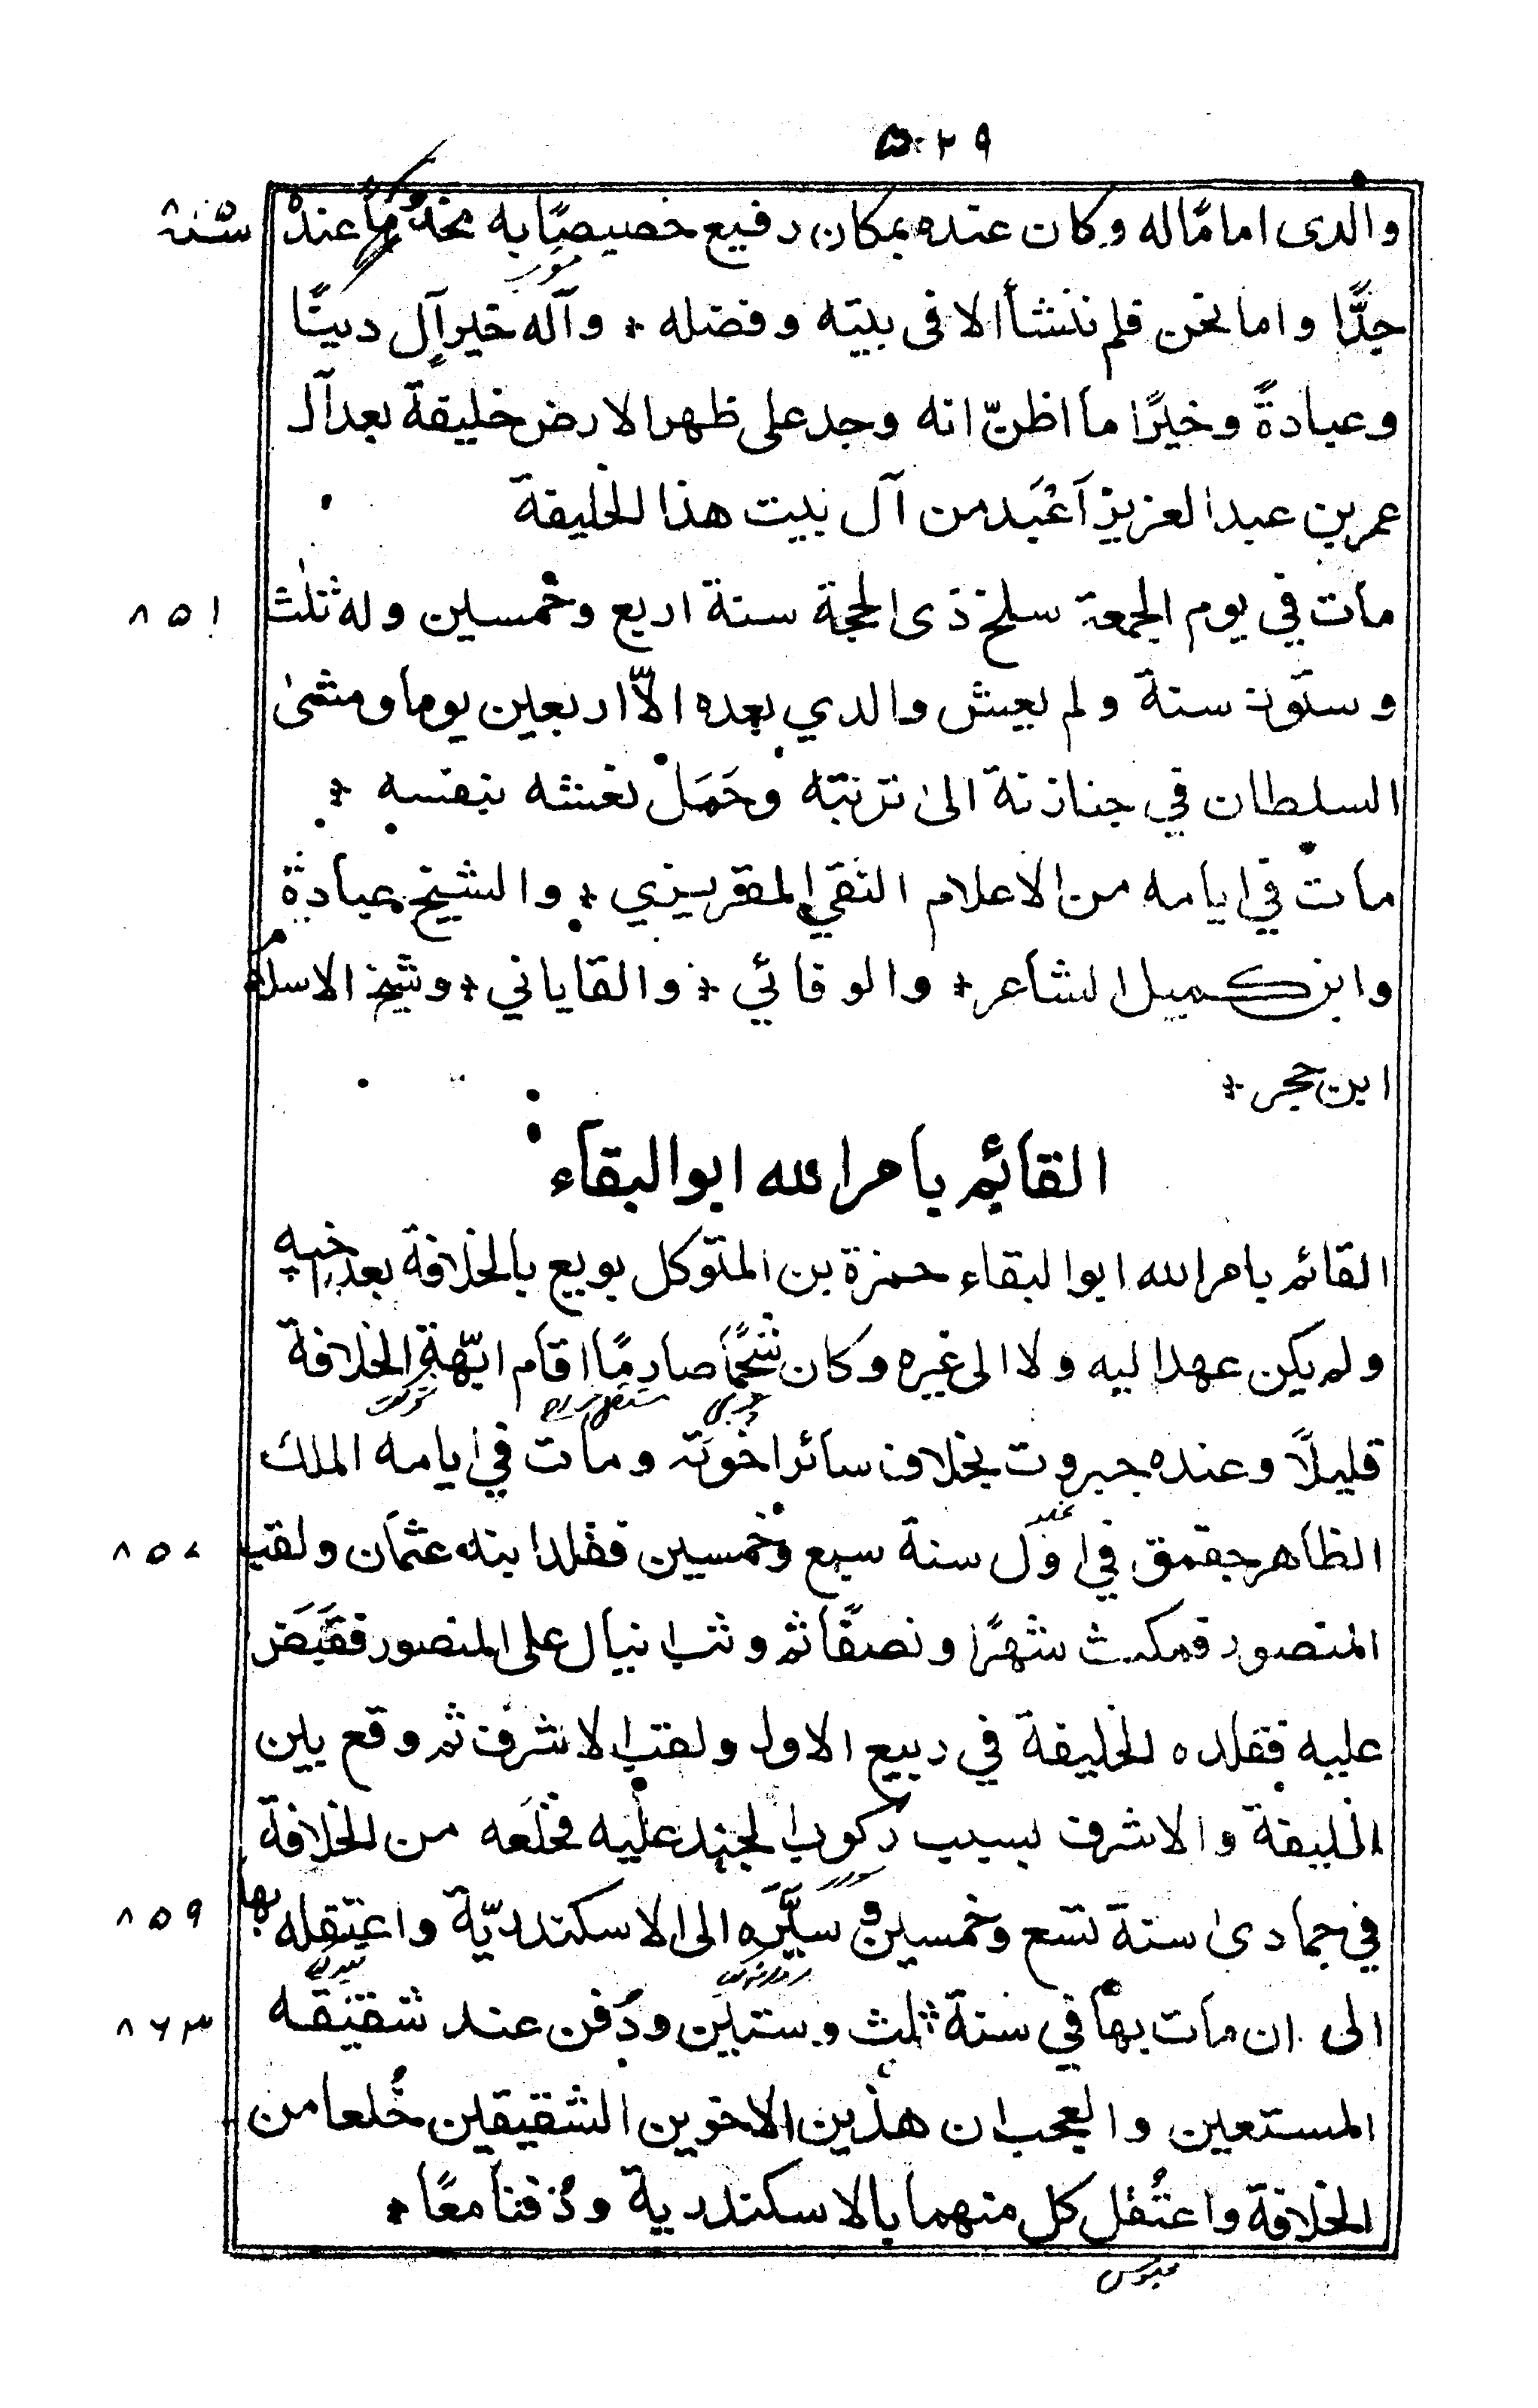 ٥٢٩
والدى اماما له وكان عنده بمكان رفيع خصيصًا به مخدومًا عنده
سنة
جدًّا واما نحن فلم ننشأ الا فى بيته وفضله * وآله خير آل دينًا
وعبادةً وخيرًا ما اظنّ انه وجد على ظهر الارض خليفة بعد آل
عمر بن عبد العزيز اَعْبَد من آل بيت هذا الخليفة
مات في يوم الجمعة سلخ ذى الحجة سنة اربع وخمسين وله ثلث
٨٥١
وستون سنة ولم يعش والدي بعده الّا اربعين يوما ومشىٰ
السلطان في جنازته الىٰ تربته وحَمَلَ نعشه بنفسه *
مات في ايامه من الاعلام التقي المقريزي * والشيخ عبادة
وابن كميل الشاعر * والوفائي * والقاياني * وشيخ الاسلام
ابن حجر *
القائم بامر الله ابو البقاء
القائم بامر الله ابو البقاء حمزة بن المتوكل بويع بالخلافة بعد اخيه
ولم يكن عهد اليه ولا الى غيره وكان شهمًا صارمًا اقام ابّهة الخلافة
قليلًا وعنده جبروت بخلاف سائر اخوته ومات في ايامه الملك
الظاهر جقمق في اول سنة سبع وخمسين فقلد ابنه عثمان ولقب
٨٥٧
المنصور فمكث شهرًا ونصفًا ثم وثب اينال على المنصور فقَبَضَ
عليه فقلده الخليفة في ربيع الاول ولقب الاشرف ثم وقع بين
الخليفة والاشرف بسبب ركوب الجند عليه فخلَعه من الخلافة
في جمادىٰ سنة تسع وخمسين وسيَّره الى الاسكندريّة واعتقله بها
٨٥٩
الى ان مات بها في سنة ثلث وستين ودُفن عند شقيقه
٨٦٣
المستعين والعجب ان هذين الاخوين الشقيقين خُلعا من
الخلافة واعتُقل كل منهما بالاسكندرية ودُفنا معًا *
محبوس